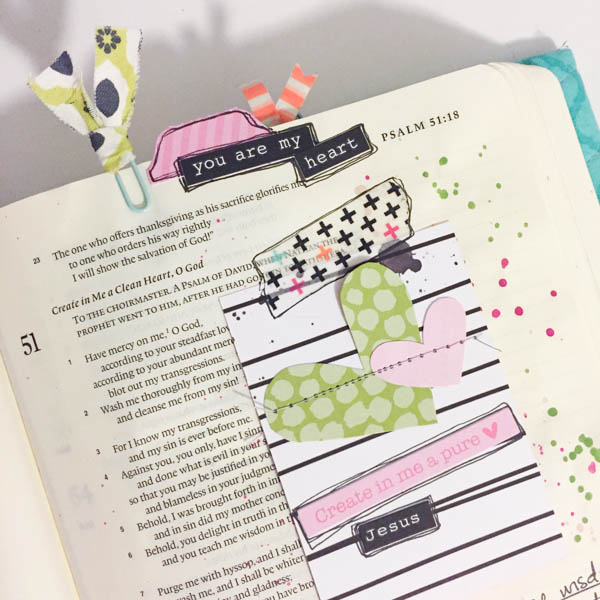 you are my
heart
PSALM 51:18
23 The one who offers thanksgiving as his sacrifice glorifies
to one who orders his way rightly
I will show the salvation of God!"
Create in Me a Clean Heart, O God
51 TO THE CHOIRMASTER. A PSALM OF DAVID, WHEN NATHAN THE
PROPHET WENT TO HIM, AFTER HE HAD
1 Have mercy on me, O God,
according to your steadfast
according to your abundant
blot out my transgressions.
2 Wash me thoroughly from my
and cleanse me from my sin!
3 For I know my transgressions,
and my sin is ever before me.
4 Against you, you only, have I
and done what is evil in your
so that you may be justified in
and blameless in your
5 Behold, I was brought forth in
and in sin did my mother
6 Behold, you delight in truth in
and you teach me wisdom in
7 Purge me with hyssop, and I shall
me, and I shall be
joy and gladness;
Create in me a pure ♥
Jesus